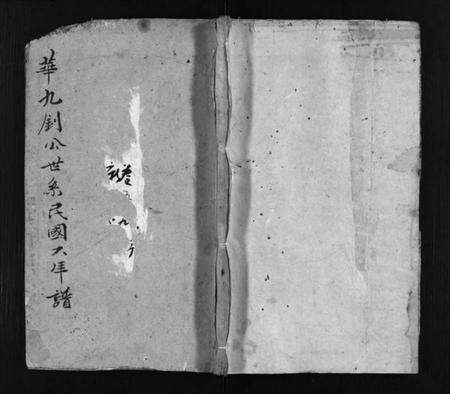 華九劉公世系民國六年譜
九